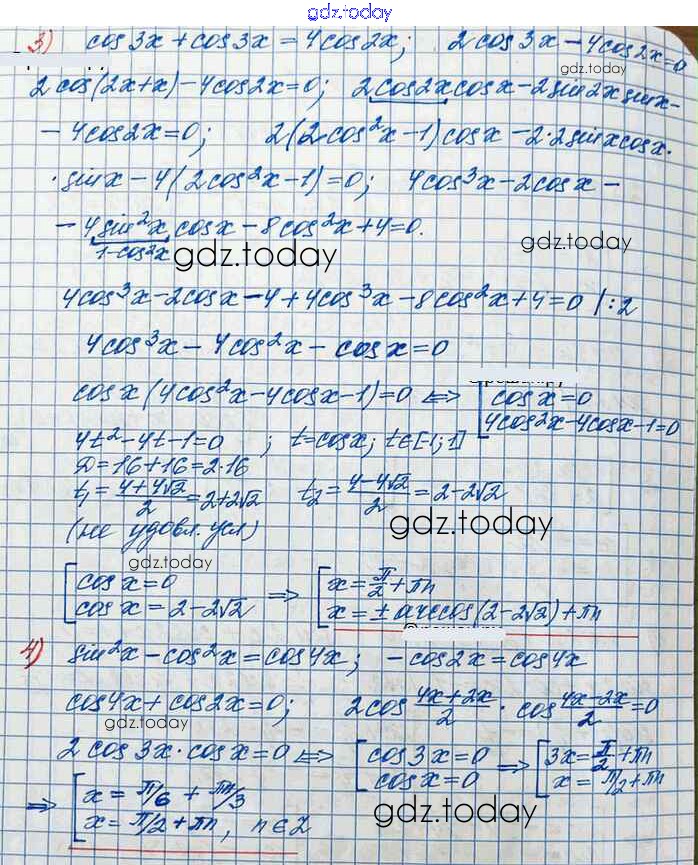 gdz.today
3) cos3x + cos3x = 4cos2x; 2cos3x - 4cos2x = 0
gdz.today
2cos(2x+x) - 4cos2x = 0; 2cos2x cosx - 2sin2x sinx -
- 4cos2x = 0; 2(2cos²x - 1)cosx - 2·2sinx cosx·
· sinx - 4(2cos²x - 1) = 0; 4cos³x - 2cosx -
- 4sin²x cosx - 8cos²x + 4 = 0.
gdz.today
1-cos²x
gdz.today
4cos³x - 2cosx - 4 + 4cos³x - 8cos²x + 4 = 0 | :2
4cos³x - 4cos²x - cosx = 0
cosx(4cos²x - 4cosx - 1) = 0 ⟺ [ cosx = 0
4cos2x - 4cosx - 1 = 0
4t² - 4t - 1 = 0 ; t = cosx; t ∈ [-1; 1]
D = 16 + 16 = 2·16
t₁ = (4+4√2)/2 = 2+2√2 t₂ = (4-4√2)/2 = 2-2√2
(не удовл. усл)
gdz.today
gdz.today
[ cosx = 0 ⟹ [ x = π/2 + πn
cosx = 2-2√2 x = ± arccos(2-2√2) + πn
4) sin²x - cos²x = cos4x; -cos2x = cos4x
cos4x + cos2x = 0; 2cos (4x+2x)/2 · cos (4x-2x)/2 = 0
gdz.today
2cos3x · cosx = 0 ⟺ [ cos3x = 0 ⟹ [ 3x = π/2 + πn
cosx = 0 x = π/2 + πn
⟹ [ x = π/6 + πn/3
x = π/2 + πn, n ∈ Z
gdz.today